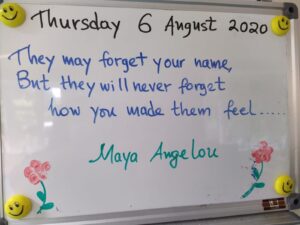 Thursday 6 August 2020
They may forget your name,
But they will never forget
how you made them feel.....
Maya Angelou